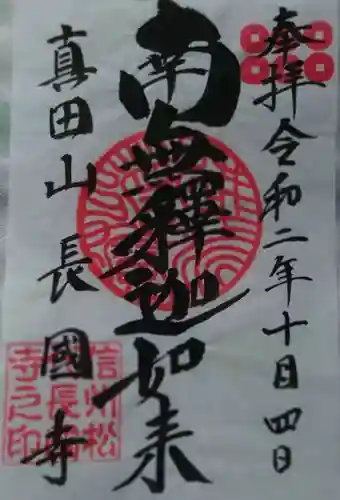 奉拝
令和二年十月四日
南無釋迦如来
真田山
長國寺
信州松
代長国
寺之印